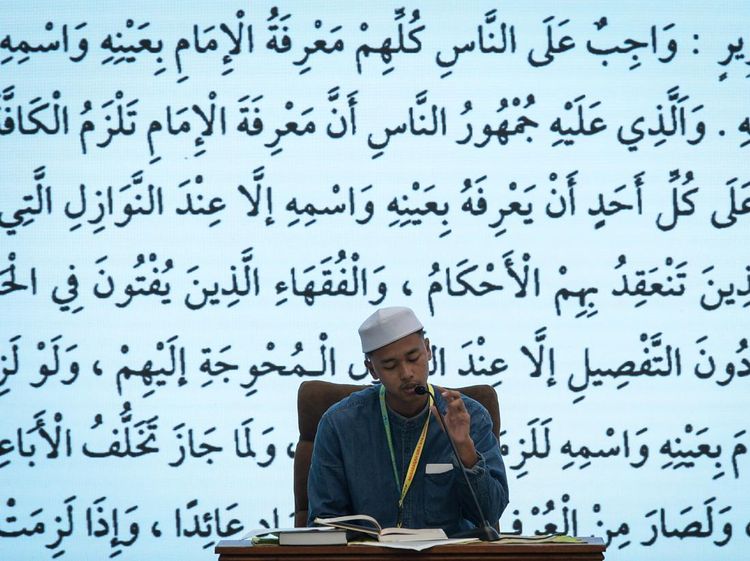 : وَاجِبٌ عَلَى النَّاسِ كُلِّهِمْ مَعْرِفَةُ الْإِمَامِ بِعَيْنِهِ وَاسْمِهِ
. وَالَّذِي عَلَيْهِ جُمْهُورُ النَّاسِ أَنَّ مَعْرِفَةَ الْإِمَامِ تَلْزَمُ الْكَافَّةَ
عَلَى كُلِّ أَحَدٍ أَنْ يَعْرِفَهُ بِعَيْنِهِ وَاسْمِهِ إِلَّا عِنْدَ النَّوَازِلِ الَّتِي
تَنْعَقِدُ بِهِمْ الْأَحْكَامُ ، وَالْفُقَهَاءِ الَّذِينَ يُفْتُونَ فِي
دُونَ التَّفْصِيلِ إلَّا عِنْدَ الْمُحْوِجَةِ إلَيْهِمْ ، وَلَوْ
بِعَيْنِهِ وَاسْمِهِ ، وَلَمَا جَازَ تَخَلُّفُ
وَلَصَارَ مِنْ عَائِدًا ، وَإِذَا لَزِمَتْ